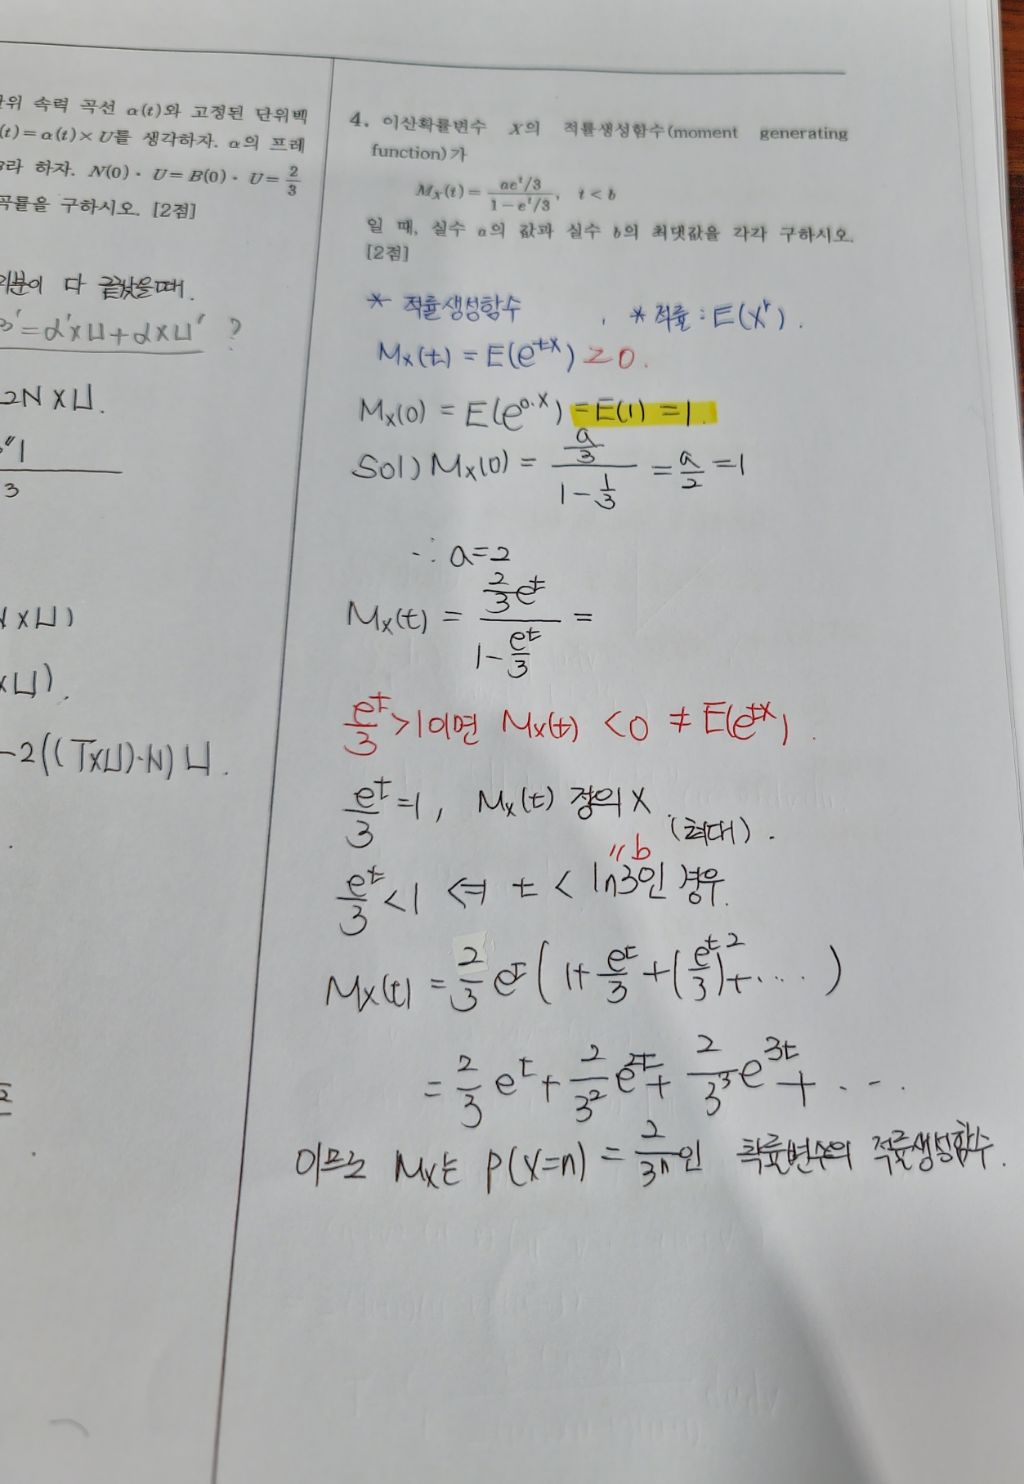 위 속력 곡선 α(t)와 고정된 단위벡
(t)=α(t)×U를 생각하자. α의 프레
라 하자. N(0)·U=B(0)·U=2/3
곡률을 구하시오. [2점]
다 끝났을때.
'=α'×U+α×U' ?
2N×U.
"1
3
×U)
×U).
-2((T×U)·N)U.
4. 이산확률변수 X의 적률생성함수(moment generating
function)가
M_X(t)=(ae^t/3)/(1-e^t/3), t<b
일 때, 실수 a의 값과 실수 b의 최댓값을 각각 구하시오.
[2점]
* 적률생성함수 , * 적률 : E(X^r).
M_X(t) = E(e^{tX}) ≥0.
M_X(0) = E(e^{0·X}) = E(1) = 1.
Sol) M_X(0) = (a/3)/(1-1/3) = a/2 = 1
∴ a=2
M_X(t) = (2/3 e^t)/(1-e^t/3) =
e^t/3 >1이면 M_X(t) <0 ≠ E(e^{tX}).
e^t/3 =1, M_X(t) 정의 X
(최대).
"b
e^t/3 <1 ⇔ t < ln3인 경우.
M_X(t) = 2/3 e^t (1+ e^t/3 + (e^t/3)^2 + ....)
= 2/3 e^t + 2/3^2 e^{2t} + 2/3^3 e^{3t} + ...
이므로 M_X는 P(X=n) = 2/3^n인 확률변수의 적률생성함수.